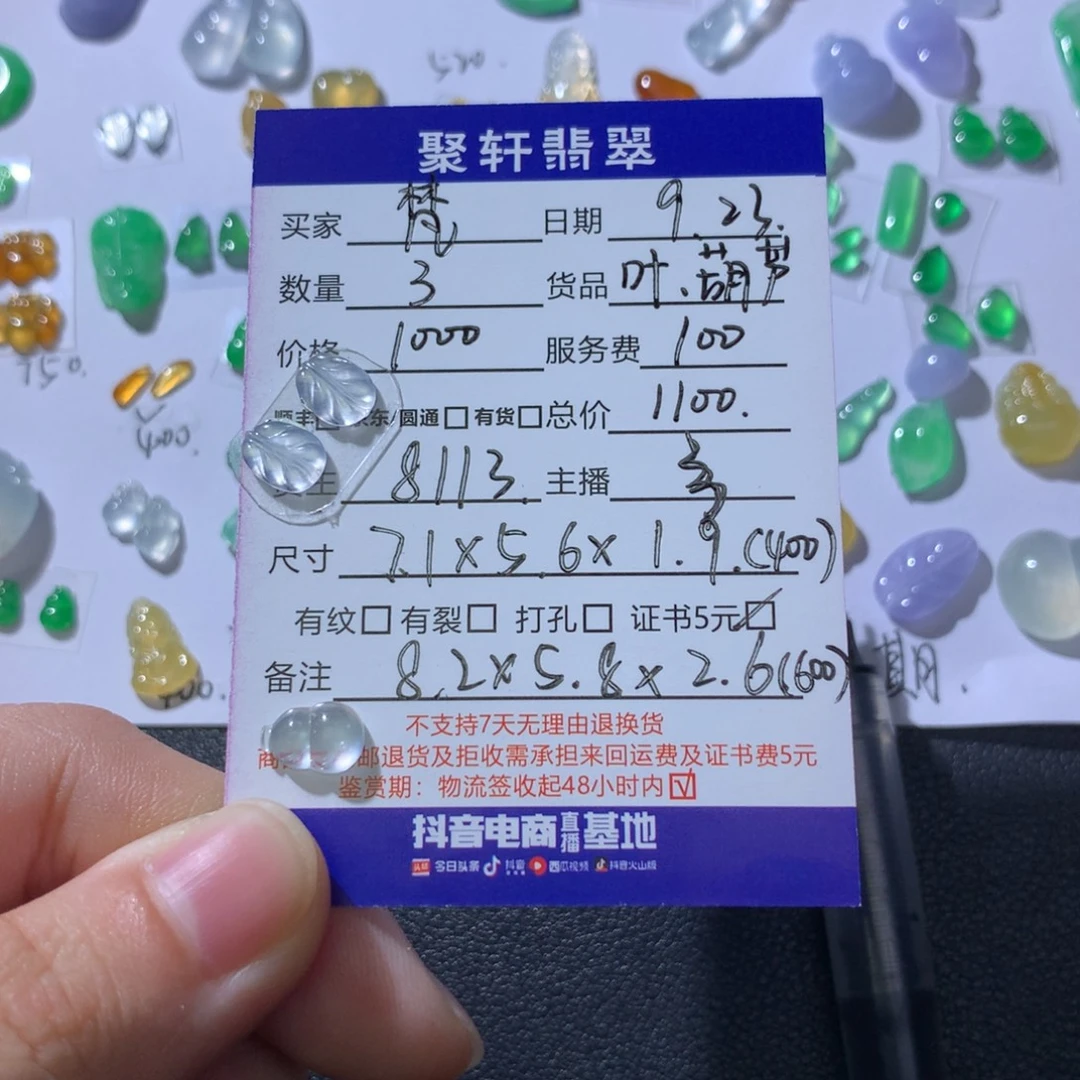 520.
聚轩翡翠
买家 梵 日期 9.23.
数量 3 货品 叶.葫芦
价格 1000 服务费 100
顺丰 京东/圆通□ 有货□ 总价 1100.
货主 8113. 主播
尺寸 7.1×5.6×1.9.(400)
有纹□ 有裂□ 打孔□ 证书5元☑
备注 8.2×5.8×2.6(600)
不支持7天无理由退换货
邮退货及拒收需承担来回运费及证书费5元
鉴赏期：物流签收起48小时内☑
抖音电商直播基地
头条 今日头条 抖音 西瓜视频 抖音火山版
750.
400.
月.